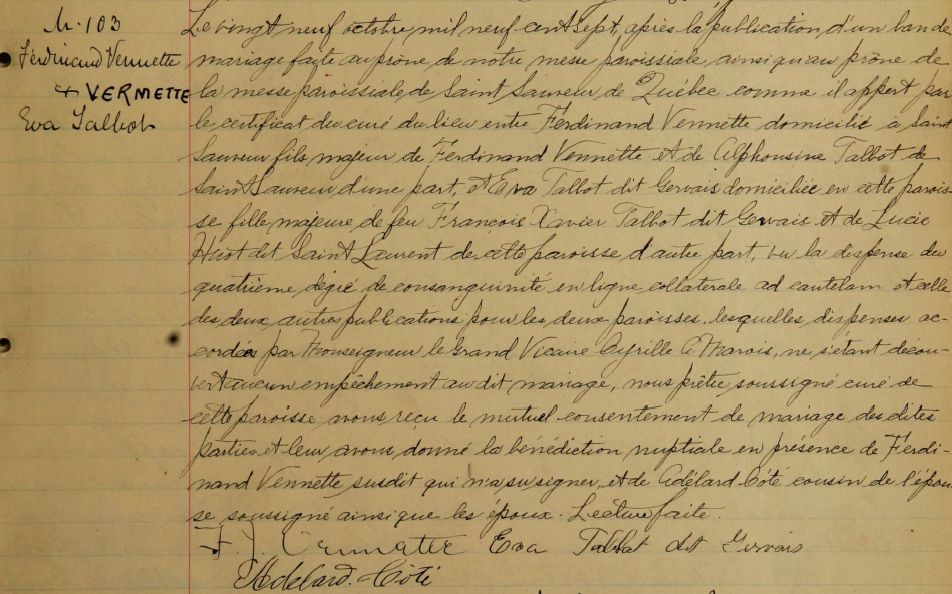 M. 103
Ferdinand Vennette
+ VERMETTE
Eva Talbot
Le vingt neuf octobre mil neuf cent sept, après la publication d'un ban de
mariage faite au prône de notre messe paroissiale, ainsi qu'au prône de
la messe paroissiale de Saint Sauveur de Québec comme il appert par
le certificat du curé du lieu entre Ferdinand Vennette domicilié à Saint
Sauveur fils majeur de Ferdinand Vennette et de Alphonsine Talbot de
Saint Sauveur d'une part, et Eva Talbot dit Gervais domiciliée en cette parois-
se fille majeure de feu François Xavier Talbot dit Gervais et de Lucie
Huot dit Saint Laurent de cette paroisse d'autre part, vu la dispense du
quatrième dégré de consanguinité en ligne collatérale ad cautelam et celle
des deux autres publications pour les deux paroisses, lesquelles dispenses ac-
cordées par Monseigneur le Grand Vicaire Cyrille A Marois, ne s'étant décou-
vert aucun empêchement au dit mariage, nous prêtre soussigné curé de
cette paroisse avons reçu le mutuel consentement de mariage des dites
parties et leur avons donné la bénédiction nuptiale en présence de Ferdi-
nand Vennette susdit qui n'a su signer, et de Adélard Côté cousin de l'épou-
se soussigné ainsi que les époux. Lecture faite.
F. J. Vermette Eva Talbot dit Gervais
Adelard. Côté